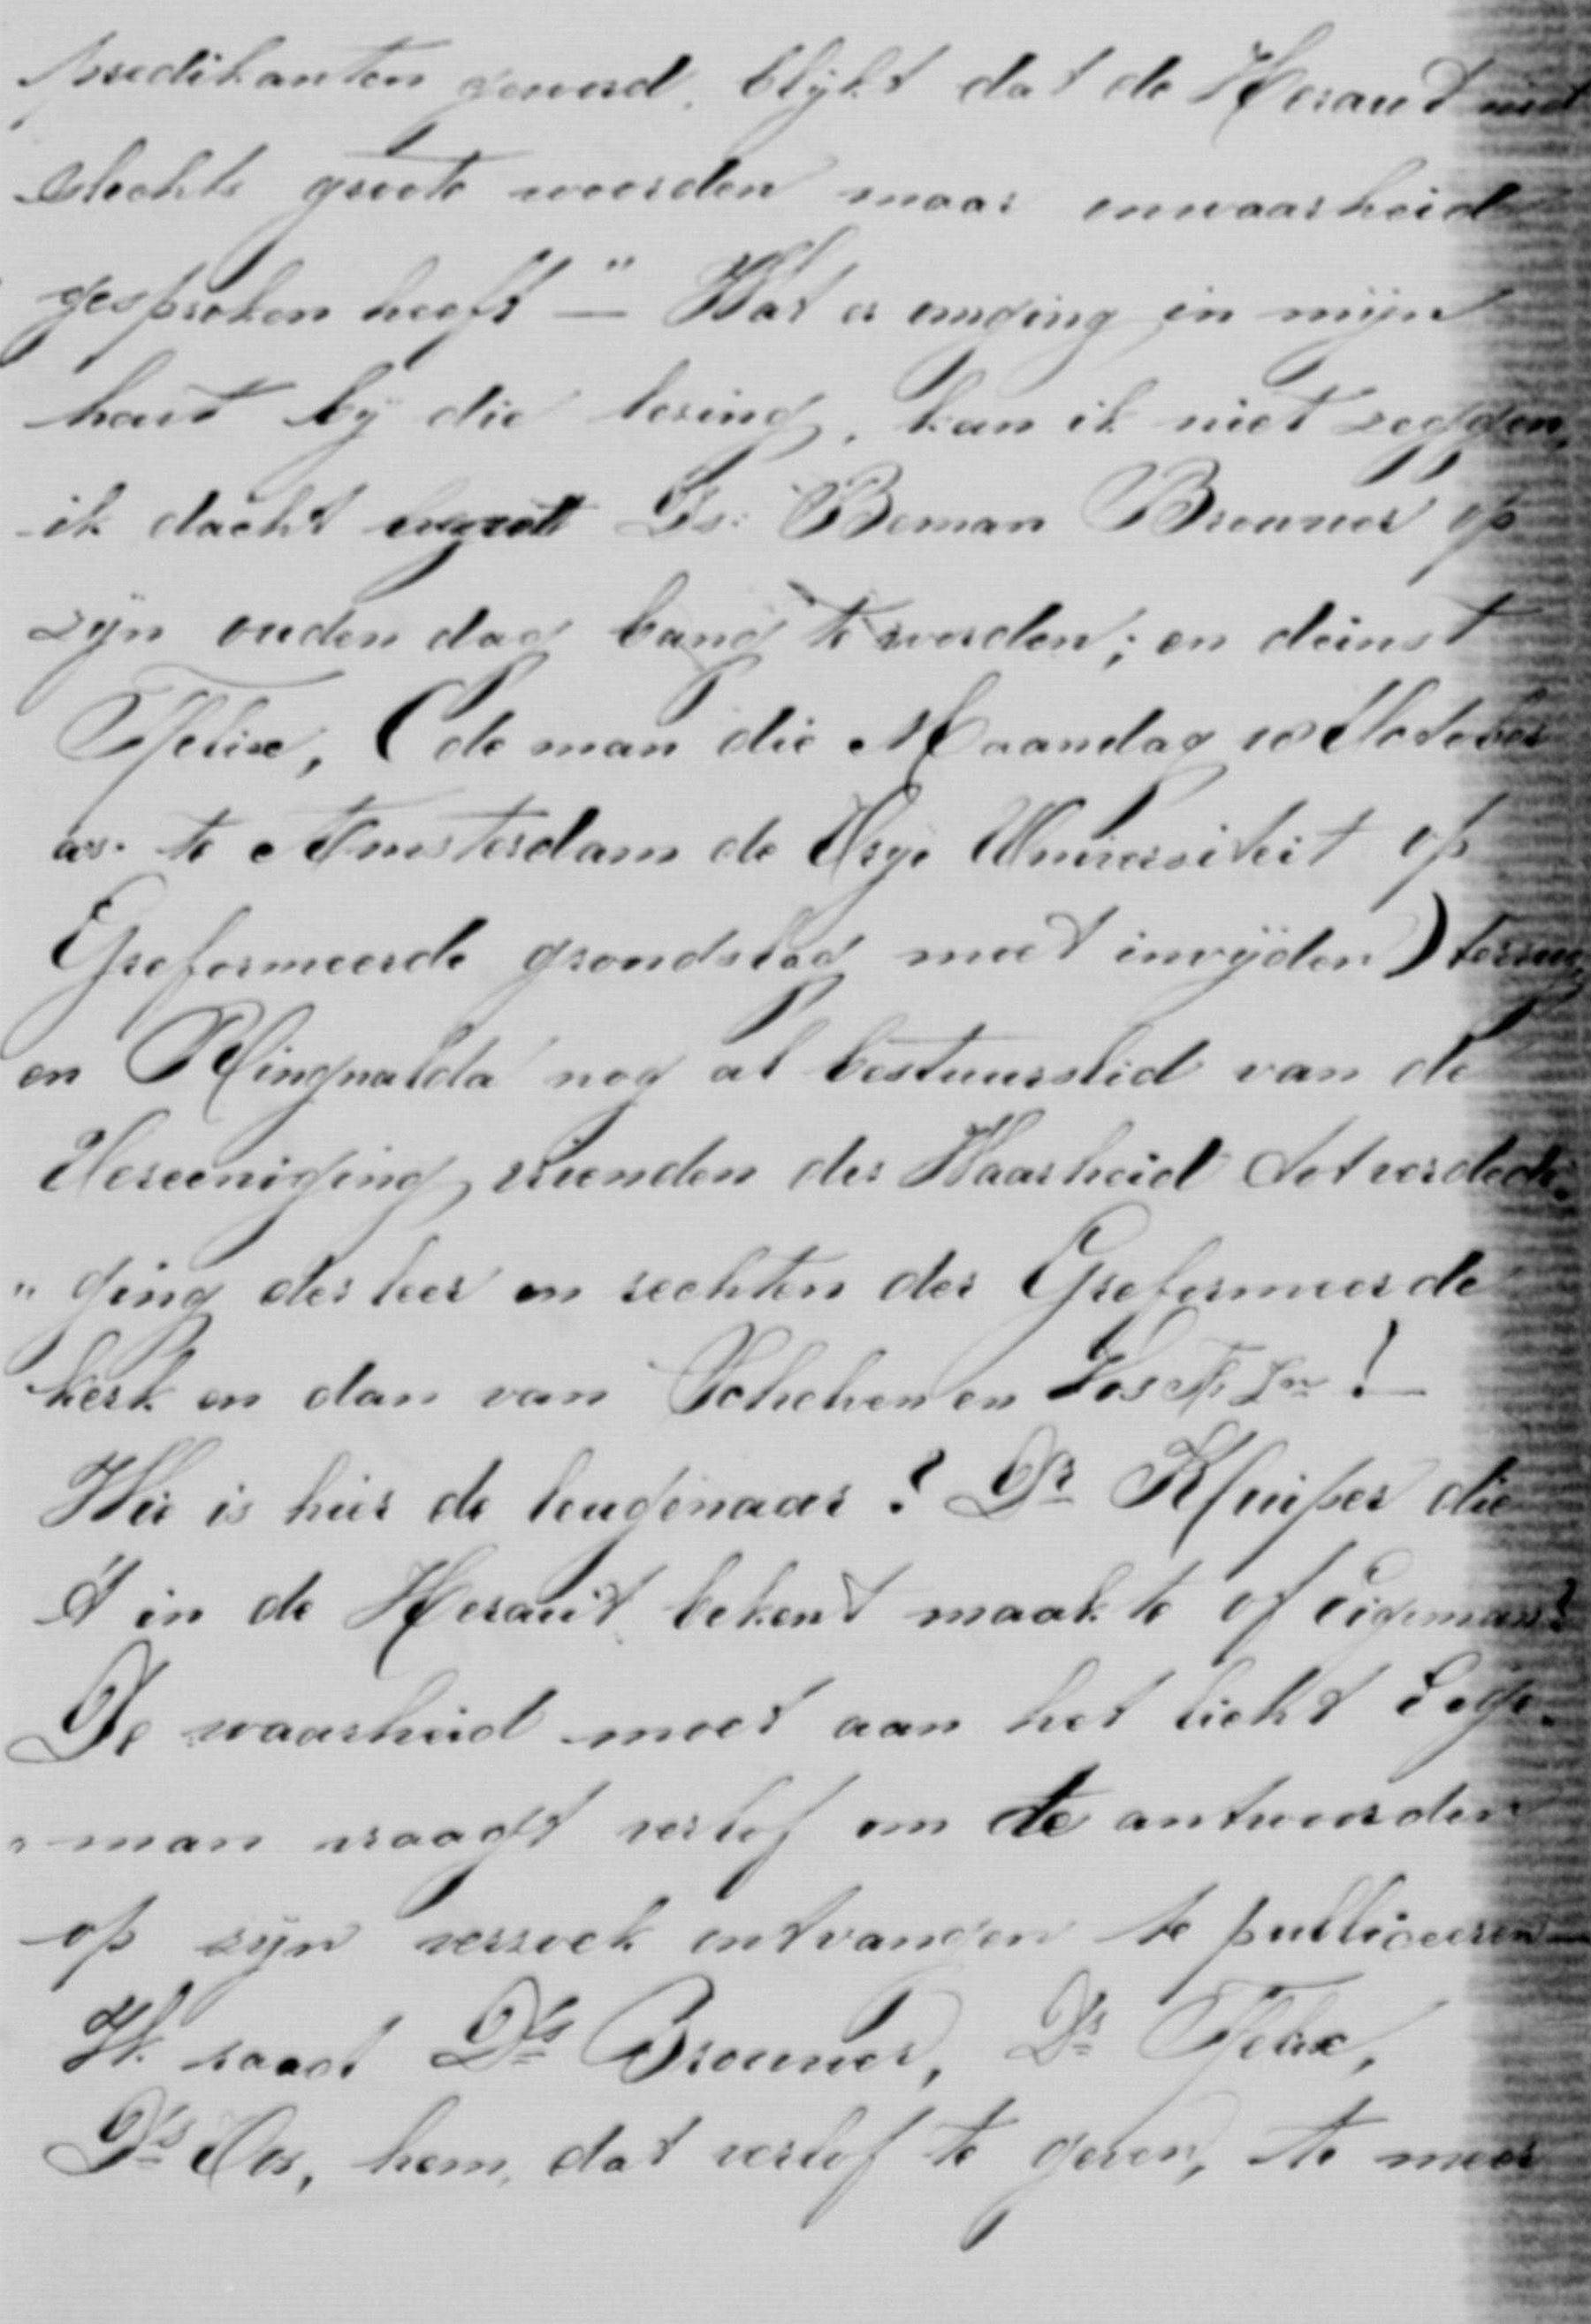 predikanten gewerd, blijkt dat de Heraut niet
slechts groote woorden maar onwaarheid
gesproken heeft —" Wat er omging in mijn
hart bij die lezing, kan ik niet zeggen,
ik dacht wordt Ds. Beman Brouwer op
zijn ouden dag bang te worden; en deinst
Felix, (de man die Maandag 18 October
as. te Amsterdam de Vrije Universiteit op
Gereformeerde grondslag moet inwijden) terug
en Ringnalda nog al bestuurslid van de
Vereeniging vrienden der Waarheid tot verdedi„
„ging der leer en rechten der Gereformeerde
kerk en dan van Schelven en Vos Azn !—
Wie is hier de leugenaar? Dr Kuiper die
't in de Heraut bekent maakte of Eigeman?
De waarheid moet aan het licht Eige„
„man vraagt verlof om de antwoorden
op zijn verzoek ontvangen te publiceeren—
W. raad Ds Brouwer, Ds Felix,
Ds Vos, hem, dat verlof te geven, te meer